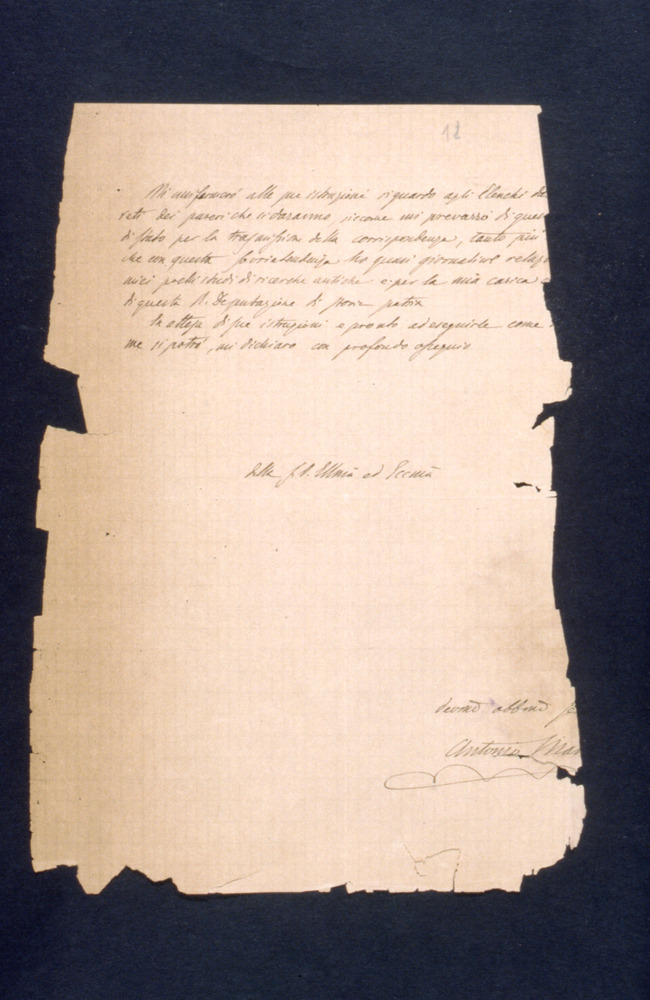 12
Mi uniformerò alle sue istruzioni riguardo agli Elenchi de
dei pareri che si daranno, siccome mi prevarrò di ques
di Stato per la trasmissione della corrispondenza, tanto più
che con questa ho quasi giornalive relaz
miei studi di ricerche antiche e per la mia carica
di questa R. Deputazione di storia patria
In attesa di sue istruzioni e pronto ad eseguirle come
me si potrà, mi dichiaro con profondo ossequio
della S. V. Illma ed Eccma
devmo obbmo
Antonio Man